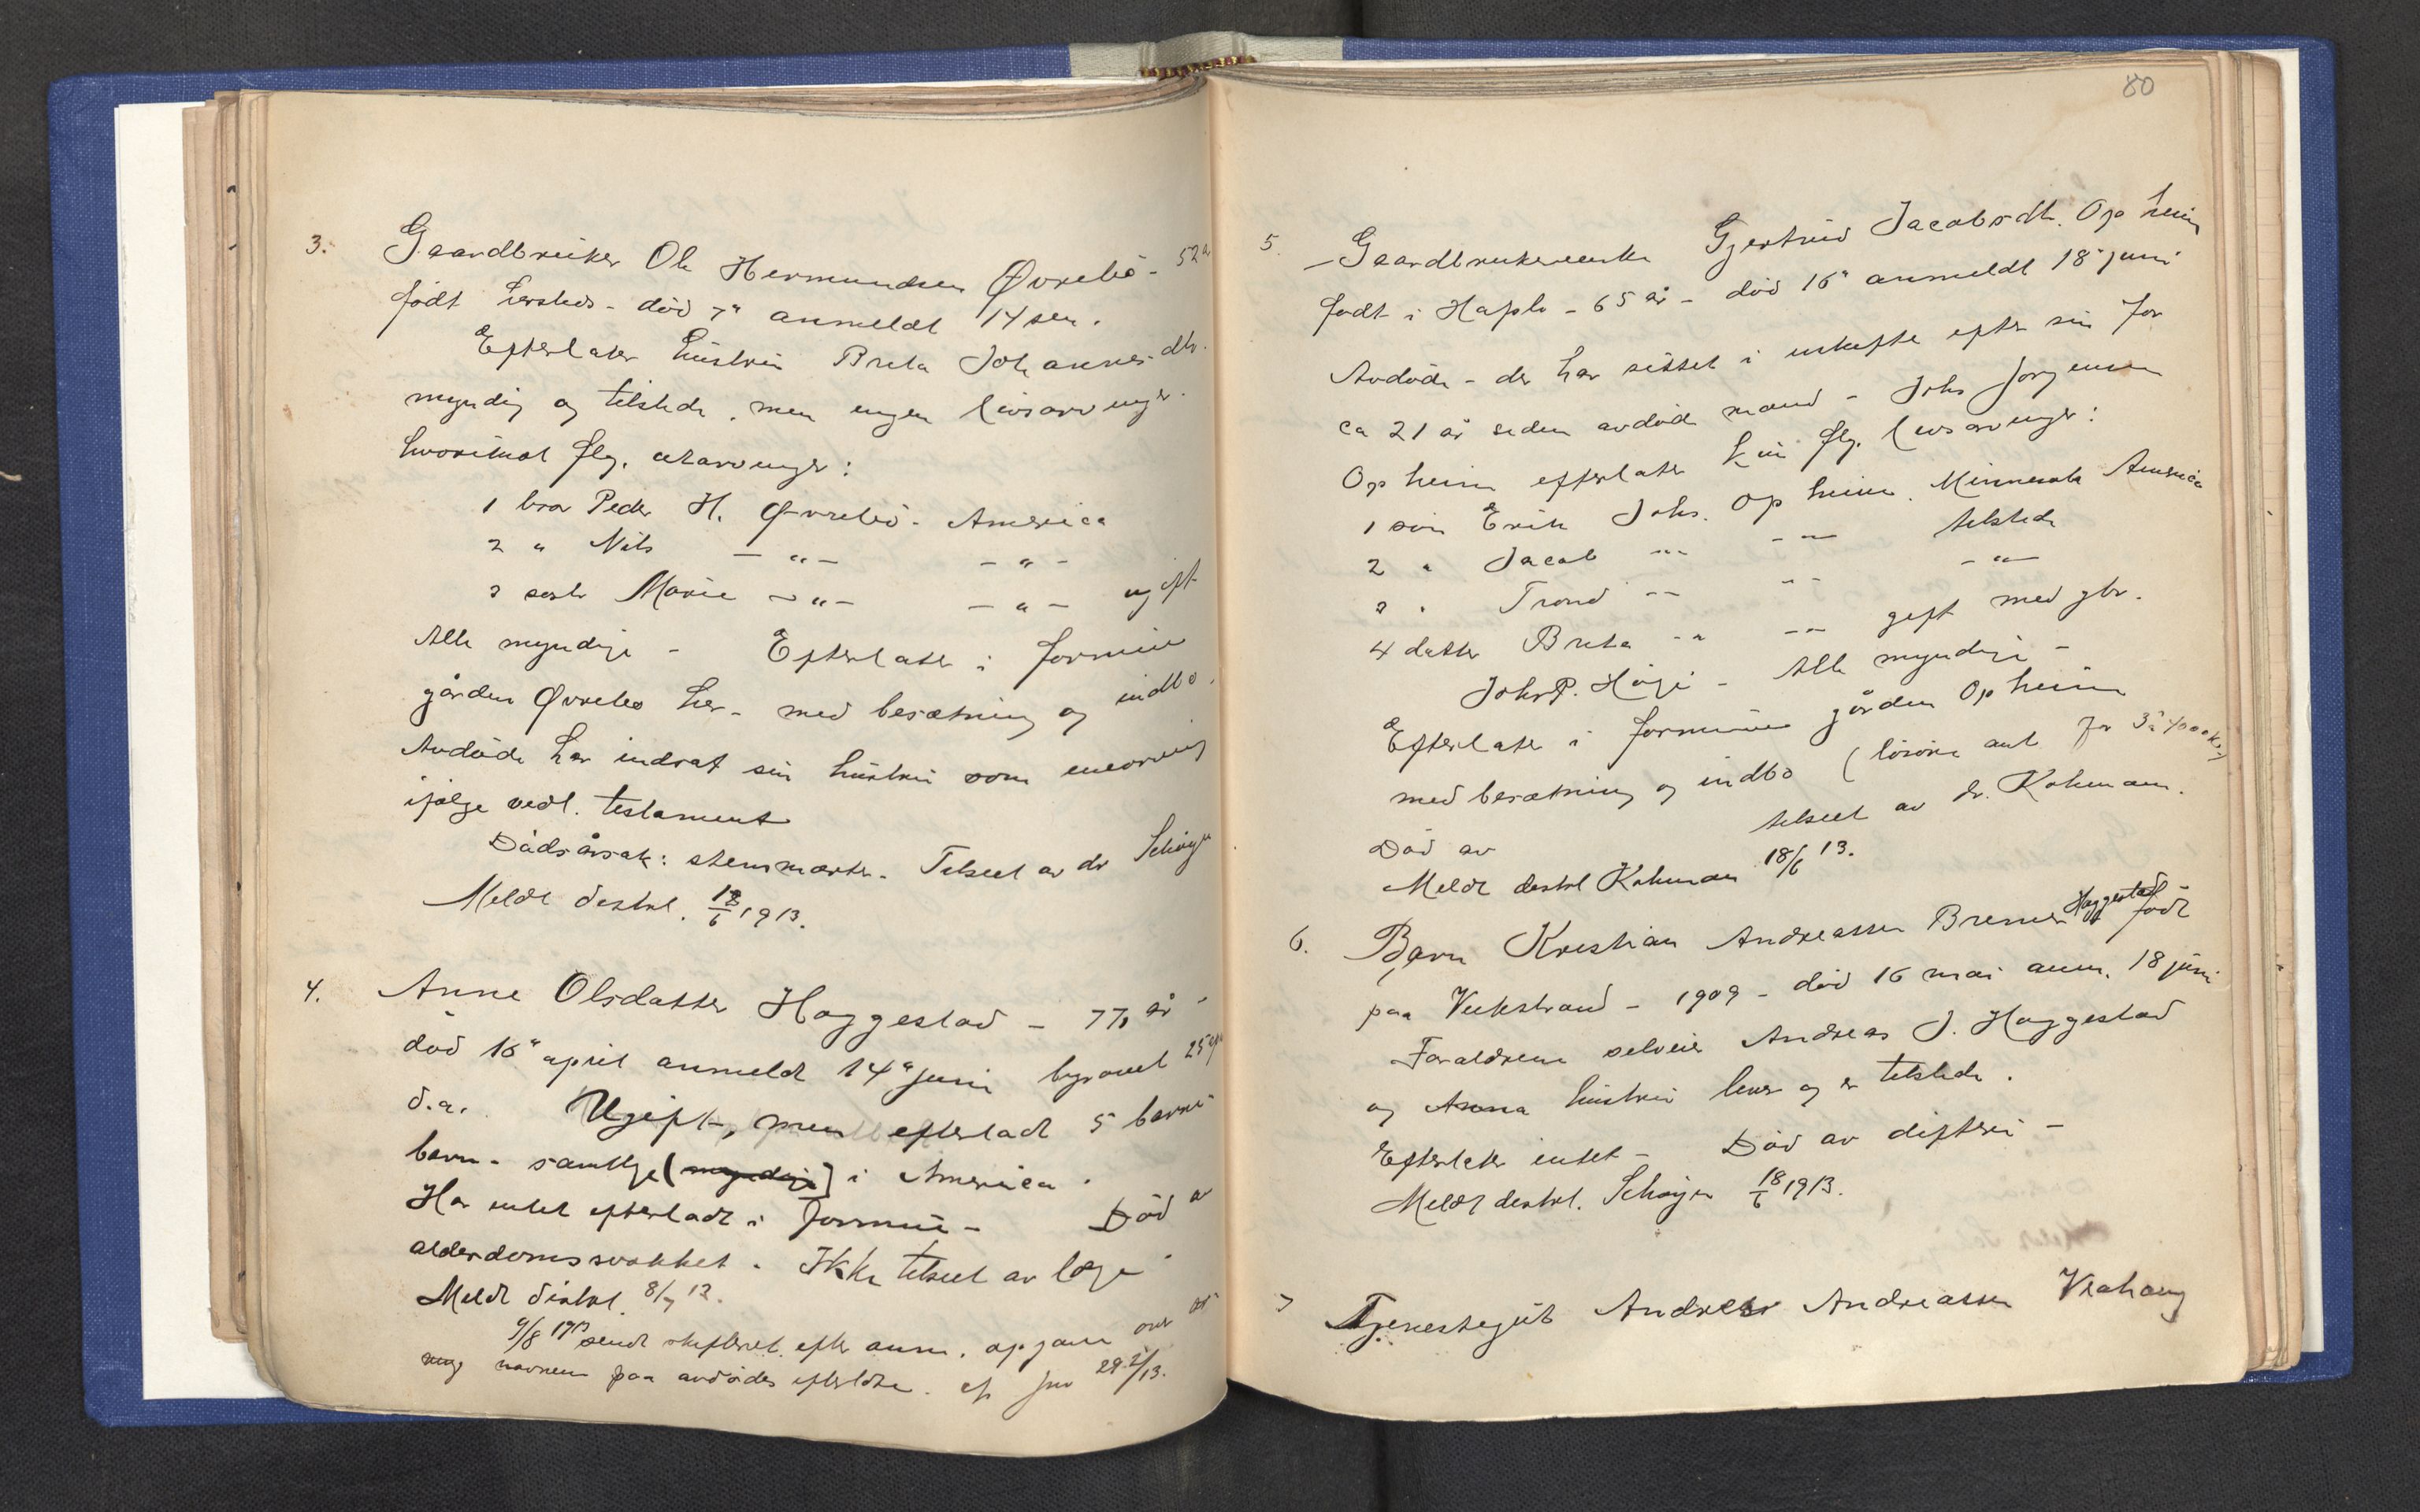 3. Gaardbruker Ole Hermundsen Øvrebö - 52 a
født hersteds - död 7" anmeldt 14 sm.
Efterlater hustru Breta Johannesdtr.
myndig og tilstede, men ingen livsarvinger.
hvorimot flg. utarvinger:
1 bror Peder H. Øvrebö - America
2 " Nils - " - - " -
3 søster Marie - " - - " - ugift
Alle myndige - Efterlater i formue
gården Øvrebø her - med besætning og indbo.
Avdöde har indsat sin hustru som enearving
ifølge vedl. testament
Dödsårsak: stensmerter. Tilseet av dr Schöyen
Meldt distrl. 18/6 1913.
4. Anne Olsdatter Haggestad - 77 år -
död 16" april anmeldt 14" juni begravet 25 apr
d.a. Ugift, men efterladt 5 barne-
barn - samtlige (myndige) i America.
Har intet efterladt i formue - Död av
alderdomssvakhet. Ikke tilseet av læge
Meldt distrl. 8/7 13.
9/8 1913 sendt skifteret. efter anm. opgave over
navnene paa avdödes efterldte. cf jnr 29 /13.
80
5. Gaardbrukerenke Gjertrud Jacobsdtr. Opheim
født i Hafslo - 65 år - död 16" anmeldt 18" juni
Avdöde - der har sittet i uskifte efter sin for
ca 21 år siden avdöde mand - Johs Jørgensen
Opheim efterlater kun flg. livsarvinger:
1 sön Erik Johs. Opheim. Minnesota America
2 " Jacob - " - - " - tilstede
3 " Trond - " - " - - " -
4 datter Breta - " - " gift med gbr.
Johs P. Högi - Alle myndige -
Efterlater i formue gården Opheim
med besætning og indbo (lösöre ant. for 3 à 4000 kr.)
Död av tilseet av dr. Kahman.
Meldt distrl Kahman 18/6 13.
6. Barn Kristian Andreassen Bremer Haggestad född
paa Veikstrand - 1909 - död 16 mai anm. 18 juni
Foraldrene selveier Andreas J. Haggestad
og Anna hustru lever og er tilstede.
Efterlater intet - Död av difteri -
Meldt distrl. Schöyen 18/6 1913.
7 Tjenestegut Andreas Andreassen Veahaug